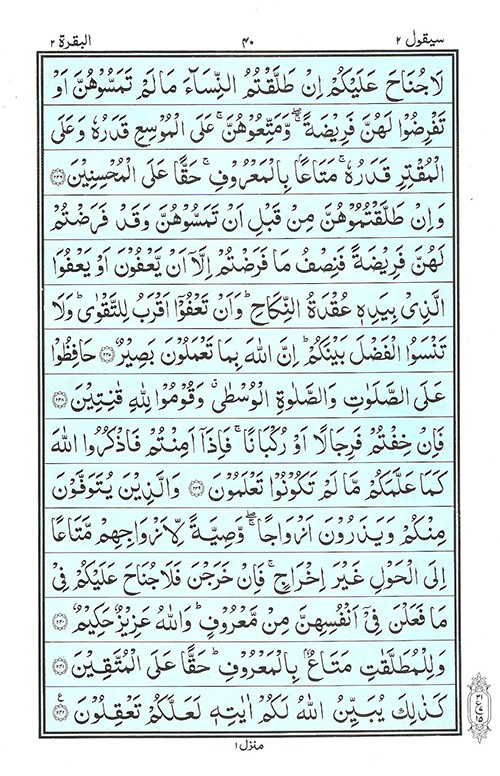 سيقول ٢ ٤٠ البقرة ٢
لَا جُنَاحَ عَلَيْكُمْ اِنْ طَلَّقْتُمُ النِّسَآءَ مَا لَمْ تَمَسُّوْهُنَّ اَوْ
تَفْرِضُوْا لَهُنَّ فَرِيْضَةً ۚۖ وَّمَتِّعُوْهُنَّ ۚ عَلَى الْمُوْسِعِ قَدَرُهٗ وَعَلَى
الْمُقْتِرِ قَدَرُهٗ ۚ مَتَاعًا ۢ بِالْمَعْرُوْفِ ۚ حَقًّا عَلَى الْمُحْسِنِيْنَ ۝٢٣٦
وَاِنْ طَلَّقْتُمُوْهُنَّ مِنْ قَبْلِ اَنْ تَمَسُّوْهُنَّ وَقَدْ فَرَضْتُمْ
لَهُنَّ فَرِيْضَةً فَنِصْفُ مَا فَرَضْتُمْ اِلَّاۤ اَنْ يَّعْفُوْنَ اَوْ يَعْفُوَا
الَّذِيْ بِيَدِهٖ عُقْدَةُ النِّكَاحِ ؕ وَاَنْ تَعْفُوْۤا اَقْرَبُ لِلتَّقْوٰى ؕ وَلَا
تَنْسَوُا الْفَضْلَ بَيْنَكُمْ ؕ اِنَّ اللّٰهَ بِمَا تَعْمَلُوْنَ بَصِيْرٌ ۝٢٣٧ حَافِظُوْا
عَلَى الصَّلَوٰتِ وَالصَّلٰوةِ الْوُسْطٰى ۗ وَقُوْمُوْا لِلّٰهِ قٰنِتِيْنَ ۝٢٣٨
فَاِنْ خِفْتُمْ فَرِجَالًا اَوْ رُكْبَانًا ۚ فَاِذَاۤ اَمِنْتُمْ فَاذْكُرُوا اللّٰهَ
كَمَا عَلَّمَكُمْ مَّا لَمْ تَكُوْنُوْا تَعْلَمُوْنَ ۝٢٣٩ وَالَّذِيْنَ يُتَوَفَّوْنَ
مِنْكُمْ وَيَذَرُوْنَ اَزْوَاجًا ۚۖ وَّصِيَّةً لِّاَزْوَاجِهِمْ مَّتَاعًا
اِلَى الْحَوْلِ غَيْرَ اِخْرَاجٍ ۚ فَاِنْ خَرَجْنَ فَلَا جُنَاحَ عَلَيْكُمْ فِيْ
مَا فَعَلْنَ فِيْۤ اَنْفُسِهِنَّ مِنْ مَّعْرُوْفٍ ؕ وَاللّٰهُ عَزِيْزٌ حَكِيْمٌ ۝٢٤٠
وَلِلْمُطَلَّقٰتِ مَتَاعٌ ۢ بِالْمَعْرُوْفِ ؕ حَقًّا عَلَى الْمُتَّقِيْنَ ۝٢٤١
كَذٰلِكَ يُبَيِّنُ اللّٰهُ لَكُمْ اٰيٰتِهٖ لَعَلَّكُمْ تَعْقِلُوْنَ ۝٢٤٢ ع
منزل ١